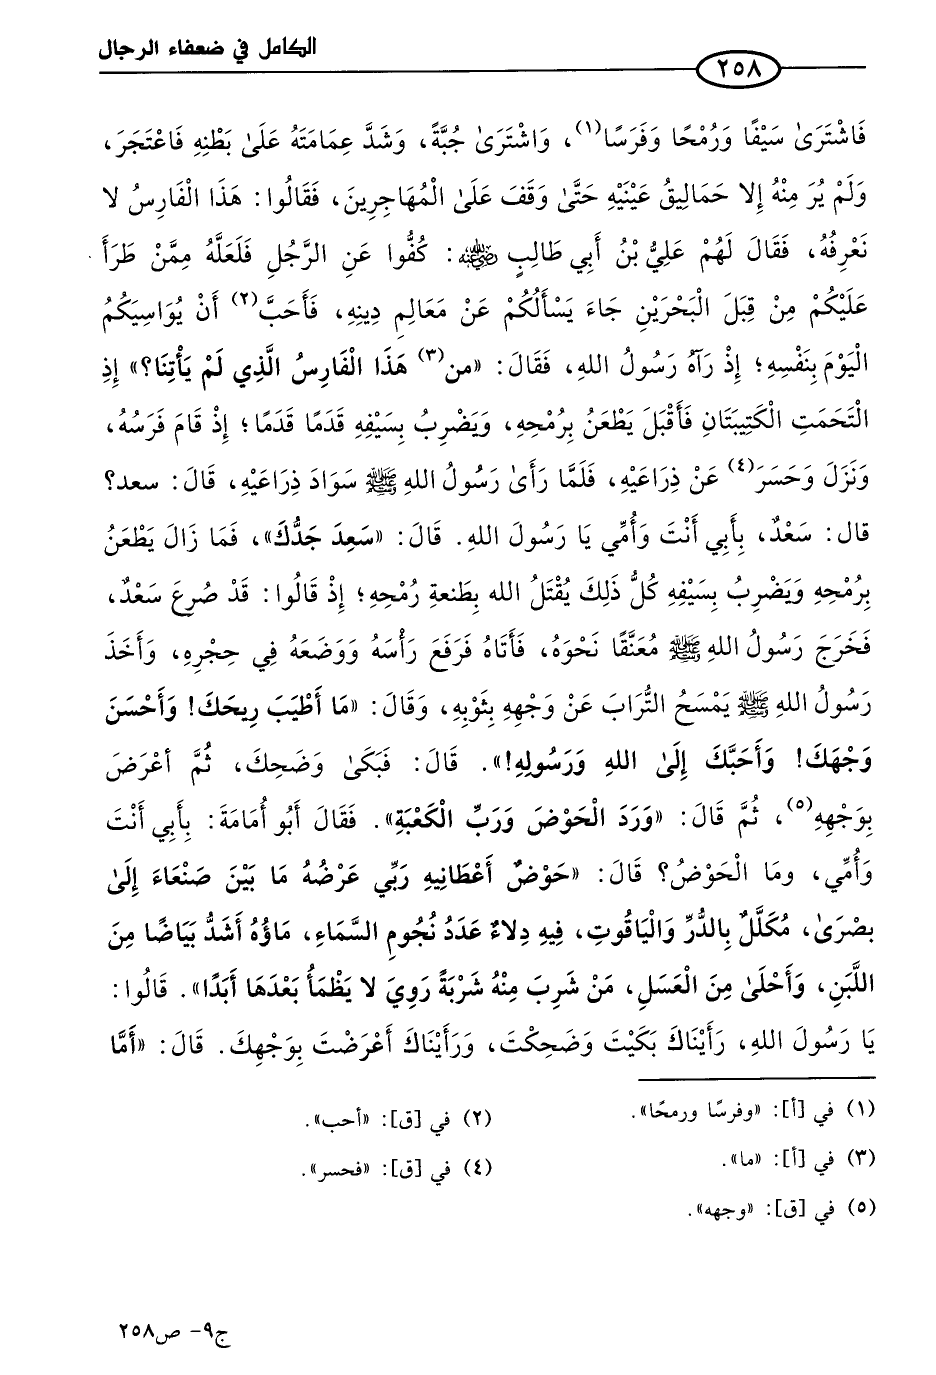 الكامل في ضعفاء الرجال
٢٥٨
فَاشْتَرَىٰ سَيْفًا وَرُمْحًا وَفَرَسًا(١)، وَاشْتَرَىٰ جُبَّةً، وَشَدَّ عِمَامَتَهُ عَلَىٰ بَطْنِهِ فَاعْتَجَرَ،
وَلَمْ يُرَ مِنْهُ إِلا حَمَالِيقُ عَيْنَيْهِ حَتَّىٰ وَقَفَ عَلَىٰ الْمُهَاجِرِينَ، فَقَالُوا: هَذَا الْفَارِسُ لا
نَعْرِفُهُ، فَقَالَ لَهُمْ عَلِيُّ بْنُ أَبِي طَالِبٍ رضي الله عنه: كُفُّوا عَنِ الرَّجُلِ فَلَعَلَّهُ مِمَّنْ طَرَأَ
عَلَيْكُمْ مِنْ قِبَلَ الْبَحْرَيْنِ جَاءَ يَسْأَلُكُمْ عَنْ مَعَالِمِ دِينِهِ، فَأَحَبَّ(٢) أَنْ يُوَاسِيَكُمُ
الْيَوْمَ بِنَفْسِهِ؛ إِذْ رَآهُ رَسُولُ اللهِ، فَقَالَ: «من(٣) هَذَا الْفَارِسُ الَّذِي لَمْ يَأْتِنَا؟» إِذِ
الْتَحَمَتِ الْكَتِيبَتَانِ فَأَقْبَلَ يَطْعَنُ بِرُمْحِهِ، وَيَضْرِبُ بِسَيْفِهِ قَدَمًا قَدَمًا؛ إِذْ قَامَ فَرَسُهُ،
وَنَزَلَ وَحَسَرَ(٤) عَنْ ذِرَاعَيْهِ، فَلَمَّا رَأَىٰ رَسُولُ اللهِ ﷺ سَوَادَ ذِرَاعَيْهِ، قَالَ: سعد؟
قال: سَعْدٌ، بِأَبِي أَنْتَ وَأُمِّي يَا رَسُولَ اللهِ. قَالَ: «سَعِدَ جَدُّكَ»، فَمَا زَالَ يَطْعَنُ
بِرُمْحِهِ وَيَضْرِبُ بِسَيْفِهِ كُلُّ ذَلِكَ يُقْتَلُ الله بِطَنعةِ رُمْحِهِ؛ إِذْ قَالُوا: قَدْ صُرِعَ سَعْدٌ،
فَخَرَجَ رَسُولُ اللهِ ﷺ مُعَنَّقًا نَحْوَهُ، فَأَتَاهُ فَرَفَعَ رَأْسَهُ وَوَضَعَهُ فِي حِجْرِهِ، وَأَخَذَ
رَسُولُ اللهِ ﷺ يَمْسَحُ التُّرَابَ عَنْ وَجْهِهِ بِثَوْبِهِ، وَقَالَ: «مَا أَطْيَبَ رِيحَكَ! وَأَحْسَنَ
وَجْهَكَ! وَأَحَبَّكَ إِلَىٰ اللهِ وَرَسُولِهِ!». قَالَ: فَبَكَىٰ وَضَحِكَ، ثُمَّ أعْرَضَ
بِوَجْهِهِ(٥)، ثُمَّ قَالَ: «وَرَدَ الْحَوْضَ وَرَبِّ الْكَعْبَةِ». فَقَالَ أَبُو أُمَامَةَ: بِأَبِي أَنْتَ
وَأُمِّي، وما الْحَوْضُ؟ قَالَ: «حَوْضٌ أَعْطَانِيهِ رَبِّي عَرْضُهُ مَا بَيْنَ صَنْعَاءَ إِلَىٰ
بصْرَىٰ، مُكَلَّلٌ بِالدُّرِّ وَالْيَاقُوتِ، فِيهِ دِلاءٌ عَدَدُ نُجُومِ السَّمَاءِ، مَاؤُهُ أَشَدُّ بَيَاضًا مِنَ
اللَّبَنِ، وَأَحْلَىٰ مِنَ الْعَسَلِ، مَنْ شَرِبَ مِنْهُ شَرْبَةً رَوِيَ لا يَظْمَأُ بَعْدَهَا أَبَدًا». قَالُوا:
يَا رَسُولَ اللهِ، رَأَيْنَاكَ بَكَيْتَ وَضَحِكْتَ، وَرَأَيْنَاكَ أَعْرَضْتَ بِوَجْهِكَ. قَالَ: «أَمَّا
(١) في [أ]: «وفرسًا ورمحًا».
(٢) في [ق]: «أحب».
(٣) في [أ]: «ما».
(٤) في [ق]: «فحسر».
(٥) في [ق]: «وجهه».
ج٩- ص٢٥٨